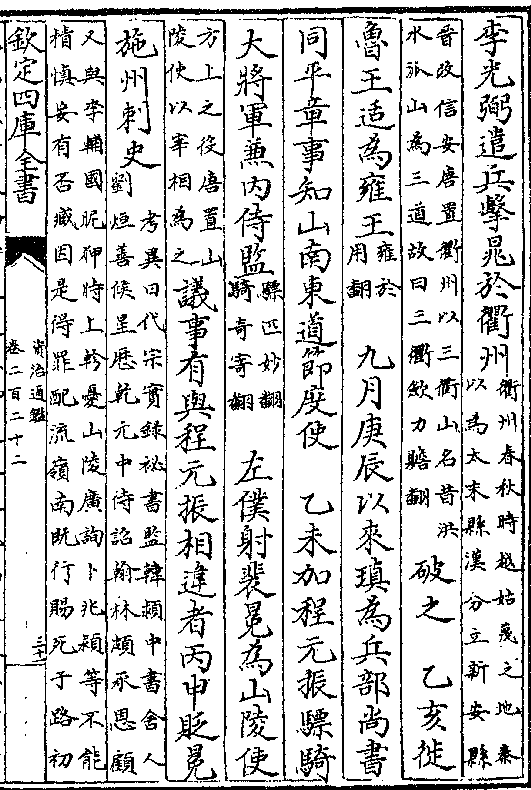 李光弼遣兵擊晁於衢州衢州春秋時越姑蔑之地秦
以為太末縣漢分立新安縣
晉改信安唐置衢州以三衢山名昔洪
水派山為三道故曰三衢欽力贍翻破之 乙亥徙
魯王适為雍王雍於
用翻 九月庚辰以來瑱為兵部尚書
同平章事知山南東道節度使 乙未加程元振驃騎
大將軍兼內侍監驃匹妙翻
騎奇寄翻 左僕射裴冕為山陵使
方上之役唐置山
陵使以宰相為之議事有與程元振相違者丙申貶冕
施州刺史考異曰代宗實錄祕書監韓穎中書舍人
劉烜善候星厯乾元中待詔翰林頗承恩顧
又與李輔國昵狎時上軫憂山陵廣詢卜兆穎等不能
精慎妄有否臧因是得罪配流嶺南既行賜死于路初
欽定四庫全書
資治通鑑
卷二百二十二